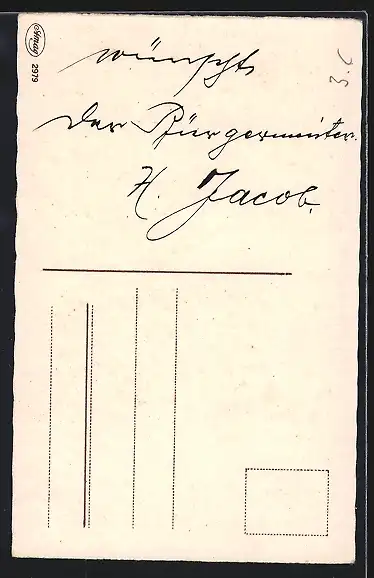 Amag
2979
wünscht
Der Bürgermeister.
H. Jacob.